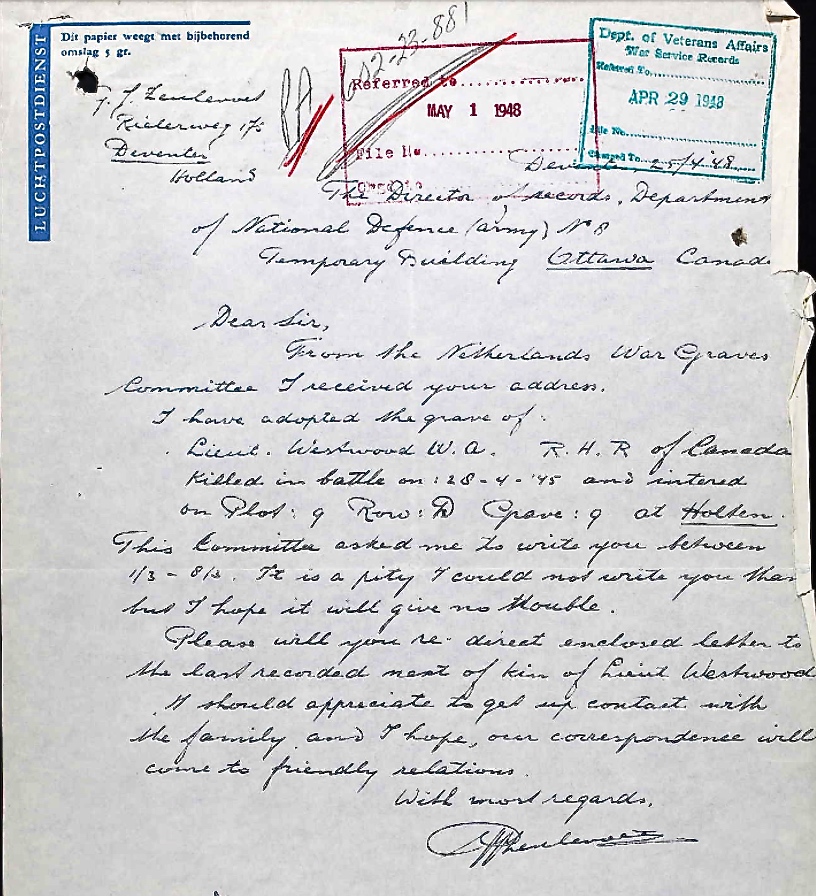 LUCHTPOSTDIENST
Dit papier weegt met bijbehorend
omslag 5 gr.
602-23-881
PA
Referred to
MAY 1 1948
File No.
Dept. of Veterans Affairs
War Service Records
Referred To
APR 29 1948
File No.
Charged To
Deventer
Holland
Deventer, 25/4 '48
The Director of records, Department
of National Defence (army) No 8
Temporary Building Ottawa Canad
Dear Sir,
From the Netherlands War Graves
Committee I received your address.
I have adopted the grave of:
Lieut. Westwood W.A. R.H.R of Canada
Killed in battle on: 28-4-'45 and intered
on Plot: 9 Row: D Grave: 9 at Holten.
This Committee asked me to write you between
1/3 - 8/3. It is a pity I could not write you than
but I hope it will give no trouble.
Please will you re-direct enclosed letter to
the last recorded next of kin of Lieut Westwood
I should appreciate to get up contact with
the family and I hope, our correspondence will
come to friendly relations.
With most regards,